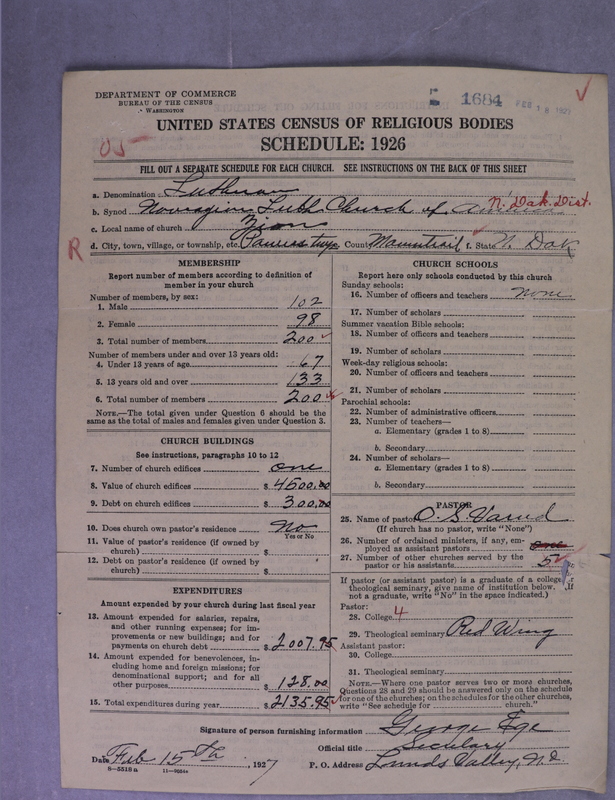 DEPARTMENT OF COMMERCE
BUREAU OF THE CENSUS
WASHINGTON
1684 FEB 18 1927
UNITED STATES CENSUS OF RELIGIOUS BODIES
SCHEDULE: 1926
05-
FILL OUT A SEPARATE SCHEDULE FOR EACH CHURCH. SEE INSTRUCTIONS ON THE BACK OF THIS SHEET
a. Denomination Lutheran
b. Synod Norvegian Luth Church of America N. Dak. Dist.
c. Local name of church Zion
R d. City, town, village, or township, etc. twp. County Mountrail f. State N. Dak
MEMBERSHIP
Report number of members according to definition of member in your church
Number of members, by sex:
1. Male 102
2. Female 98
3. Total number of members 200
Number of members under and over 13 years old:
4. Under 13 years of age 67
5. 13 years old and over 133
6. Total number of members 200
NOTE.—The total given under Question 6 should be the
same as the total of males and females given under Question 3.
CHURCH BUILDINGS
See instructions, paragraphs 10 to 12
7. Number of church edifices one
8. Value of church edifices $ 4500.00
9. Debt on church edifices $ 300.00
10. Does church own pastor's residence No
Yes or No
11. Value of pastor's residence (if owned by
church) $
12. Debt on pastor's residence (if owned by
church) $
EXPENDITURES
Amount expended by your church during last fiscal year
13. Amount expended for salaries, repairs,
and other running expenses; for im-
provements or new buildings; and for
payments on church debt $ 2007.95
14. Amount expended for benevolences, in-
cluding home and foreign missions; for
denominational support; and for all
other purposes $ 128.00
15. Total expenditures during year $ 2135.95
CHURCH SCHOOLS
Report here only schools conducted by this church
Sunday schools:
16. Number of officers and teachers none
17. Number of scholars
Summer vacation Bible schools:
18. Number of officers and teachers
19. Number of scholars
Week-day religious schools:
20. Number of officers and teachers
21. Number of scholars
Parochial schools:
22. Number of administrative officers
23. Number of teachers—
a. Elementary (grades 1 to 8)
b. Secondary
24. Number of scholars—
a. Elementary (grades 1 to 8)
b. Secondary
PASTOR
25. Name of pastor O. S.
(If church has no pastor, write "None")
26. Number of ordained ministers, if any, em-
ployed as assistant pastors
27. Number of other churches served by the
pastor or his assistants 5
If pastor (or assistant pastor) is a graduate of a college
theological seminary, give name of institution below. (If
not a graduate, write "No" in the space indicated.)
Pastor:
28. College 4
29. Theological seminary Red Wing
Assistant pastor:
30. College
31. Theological seminary
NOTE.—Where one pastor serves two or more churches,
Questions 28 and 29 should be answered only on the schedule
for one of the churches; on the schedules for the other churches,
write "See schedule for church."
Signature of person furnishing information George Ege
Official title Secretary
Date Feb 15th, 1927 P. O. Address Lunds Valley, N.D.
8-5518 a 11-9024